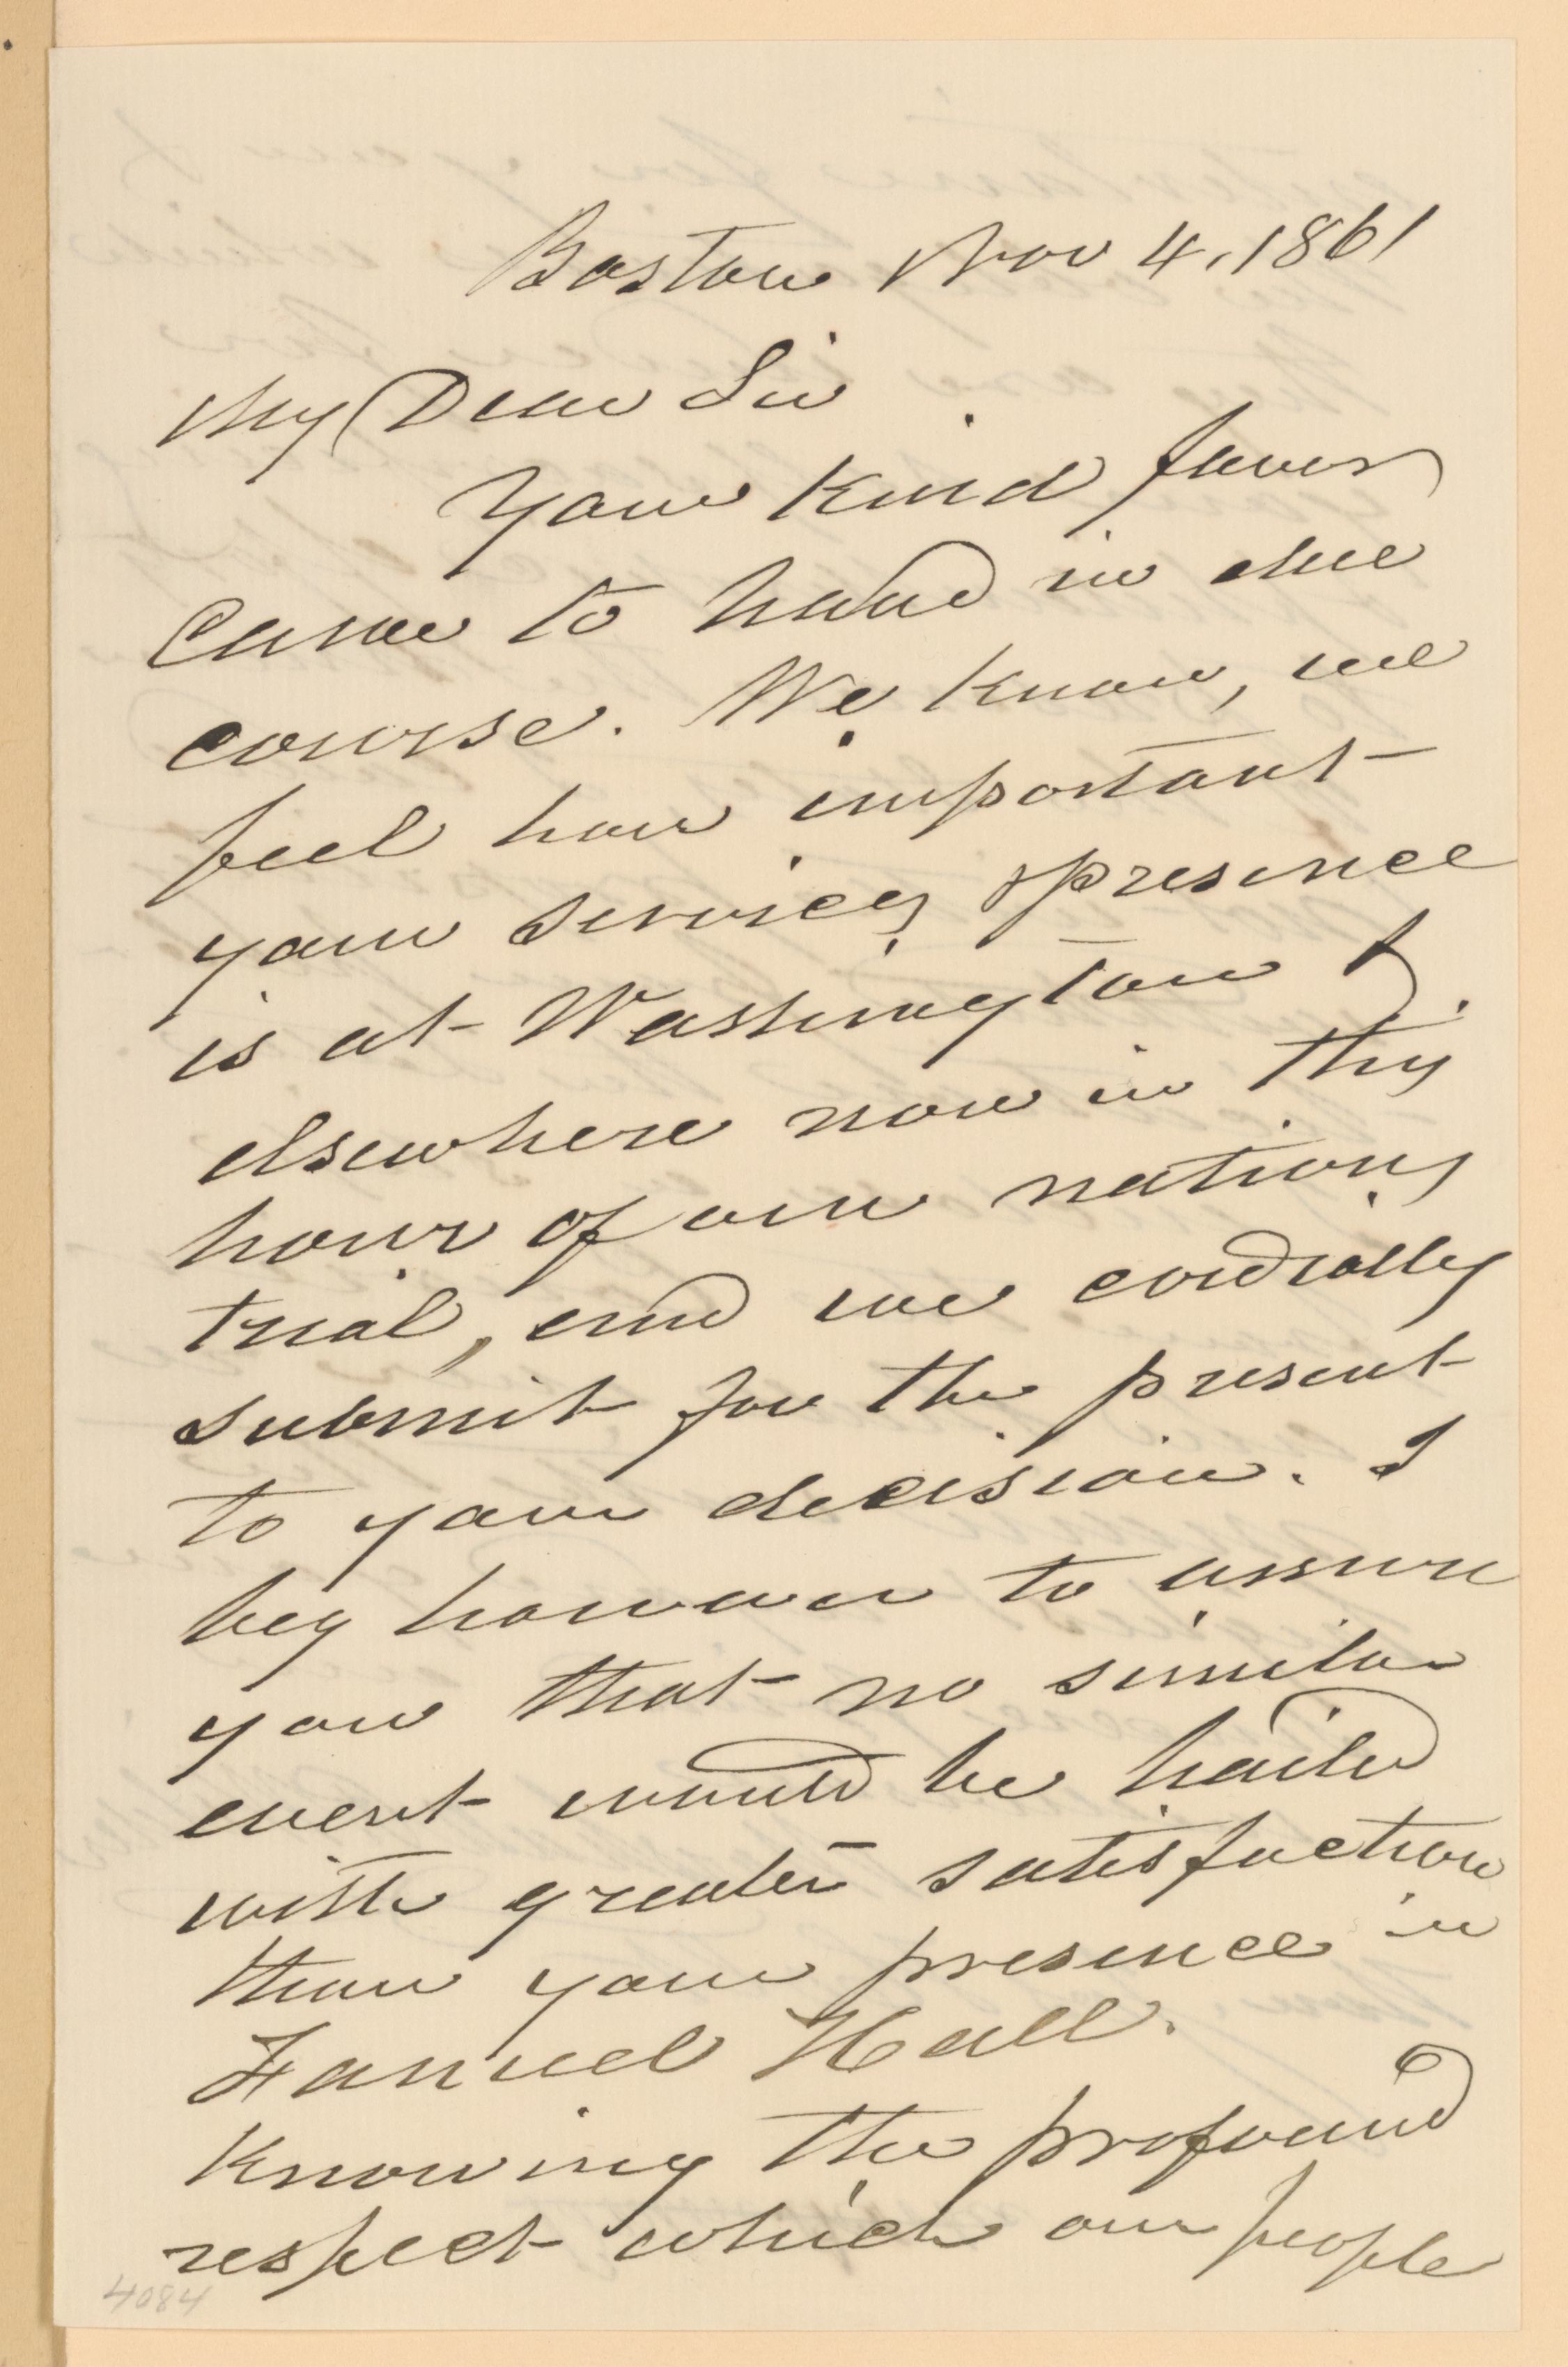 Boston Nov 4, 1861
My Dear Sir
Your kind favor
came to hand in due
course. We know, we
feel how important
your services, & presence
is at Washington &
elsewhere now in this
hour of our nations
trial, and we cordially
submit for the present
to your decision. I
beg however to assure
you that no similar
event would be hailed
with greater satisfaction
than your presence in
Fanuel Hall.
Knowing the profound
respect which our people
4084